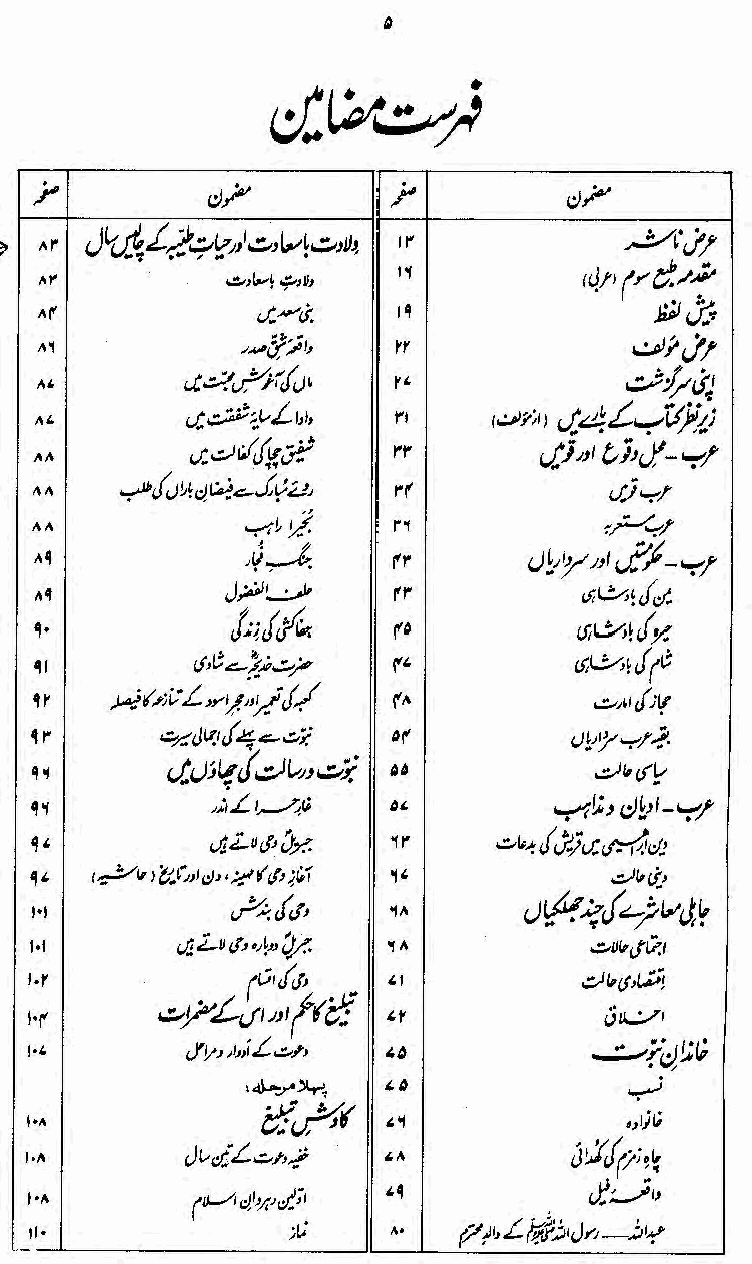 ۵
فہرست مضامین
مضمون صفحہ
عرض ناشر ۱۳
مقدمہ طبع سوم (عربی) ۱۶
پیش لفظ ۱۹
عرض مؤلف ۲۲
اپنی سرگزشت ۲۷
زیر نظر کتاب کے بارے میں (از مؤلف) ۳۱
عرب - محل وقوع اور قومیں ۳۳
عرب قومیں ۳۴
عرب مستعربہ ۳۶
عرب - حکومتیں اور سرداریاں ۴۳
یمن کی بادشاہی ۴۳
حیرہ کی بادشاہی ۴۵
شام کی بادشاہی ۴۷
حجاز کی امارت ۴۸
بقیہ عرب سرداریاں ۵۴
سیاسی حالت ۵۵
عرب - ادیان و مذاہب ۵۷
دین ابراہیمی میں قریش کی بدعات ۶۳
دینی حالت ۶۷
جاہلی معاشرے کی چند جھلکیاں ۶۸
اجتماعی حالات ۶۸
اقتصادی حالت ۷۱
اخلاق ۷۲
خاندانِ نبوّت ۷۵
نسب ۷۵
خانوادہ ۷۶
چاہِ زمزم کی کھُدائی ۷۸
واقعۂ فیل ۷۹
عبداللہ — رسول اللہ ﷺ کے والدِ محترم ۸۰
مضمون صفحہ
ولادت باسعادت اور حیاتِ طیّبہ کے چالیس سال ۸۳
ولادتِ باسعادت ۸۳
بنی سعد میں ۸۴
واقعۂ شقِّ صدر ۸۶
ماں کی آغوشِ محبّت میں ۸۷
دادا کے سایۂ شفقت میں ۸۷
شفیق چچا کی کفالت میں ۸۸
روئے مُبارک سے فیضانِ باراں کی طلب ۸۸
بُحَیرا راہب ۸۸
جنگِ فُجار ۸۹
حلف الفضول ۸۹
جفاکشی کی زندگی ۹۰
حضرت خدیجہؓ سے شادی ۹۱
کعبہ کی تعمیر اور حجرِ اسود کے تنازعہ کا فیصلہ ۹۲
نبوّت سے پہلے کی اجمالی سیرت ۹۳
نبوّت و رسالت کی چھاؤں میں ۹۶
غارِ حرا کے اندر ۹۶
جبریلؑ وحی لاتے ہیں ۹۷
آغازِ وحی کا مہینہ، دن اور تاریخ (حاشیہ) ۹۷
وحی کی بندش ۱۰۱
جبریلؑ دوبارہ وحی لاتے ہیں ۱۰۱
وحی کی اقسام ۱۰۲
تبلیغ کا حکم اور اس کے مضمرات ۱۰۴
دعوت کے اَدوار و مراحل ۱۰۷
پہلا مرحلہ:
کاوشِ تبلیغ ۱۰۸
خفیہ دعوت کے تین سال ۱۰۸
اوّلین رہروانِ اسلام ۱۰۸
نماز ۱۱۰